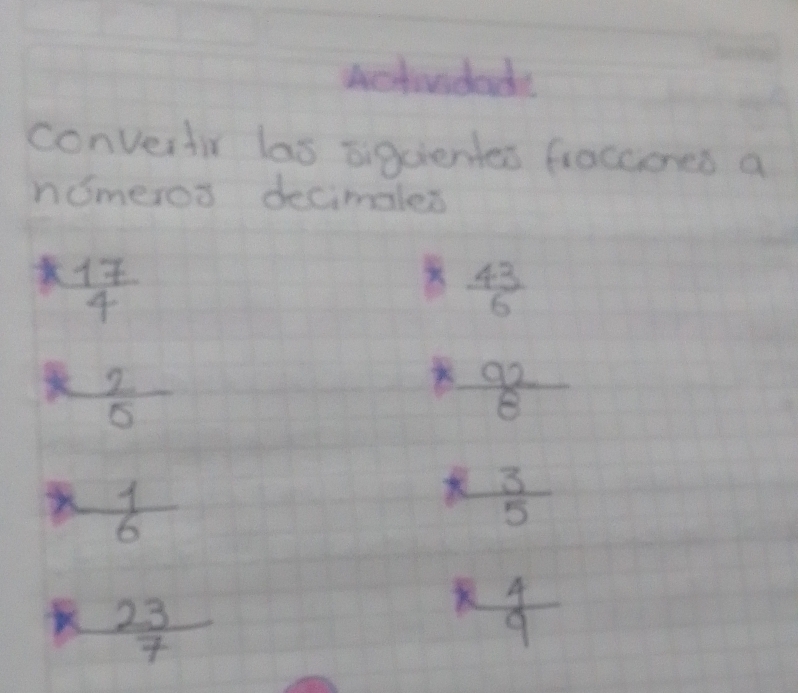 Actividad:
convertir las siguientes fracciones a
números decimales
* 17/4 * 43/6
* 2/5 * 92/8
* 1/6 * 3/5
* 23/7 * 4/9